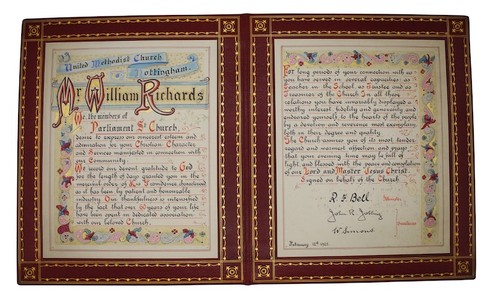 United Methodist Church
Nottingham.
Mr William Richards
We, the members of
Parliament St Church,
desire to express our sincerest esteem and
admiration for your Christian Character
and Services manifested in connection with
our Community.
We record our devout gratitude to God
for the length of days granted you in the
merciful order of His Providence
as it has been by patient and honourable
industry. Our thankfulness is intensified
by the fact that over years of your life
have been spent in dedicated association
with our beloved Church.
For long periods of your connection with us
you have served in several capacities as
Teacher in the School, as Trustee and as
Treasurer of the Church. In all these
relations you have invariably displayed a
worthy interest, fidelity and generosity and
endeared yourself to the hearts of the people
by a devotion and reverence most exemplary
both in their degree and quality.
The Church assures you of its most tender
regard and warmest affection, and prays
that your evening time may be full of
light and blessed with the peace and consolation
of our Lord and Master Jesus Christ.
Signed on behalf of the Church
R. F. Bell Minister
John R.
W. Simons
February